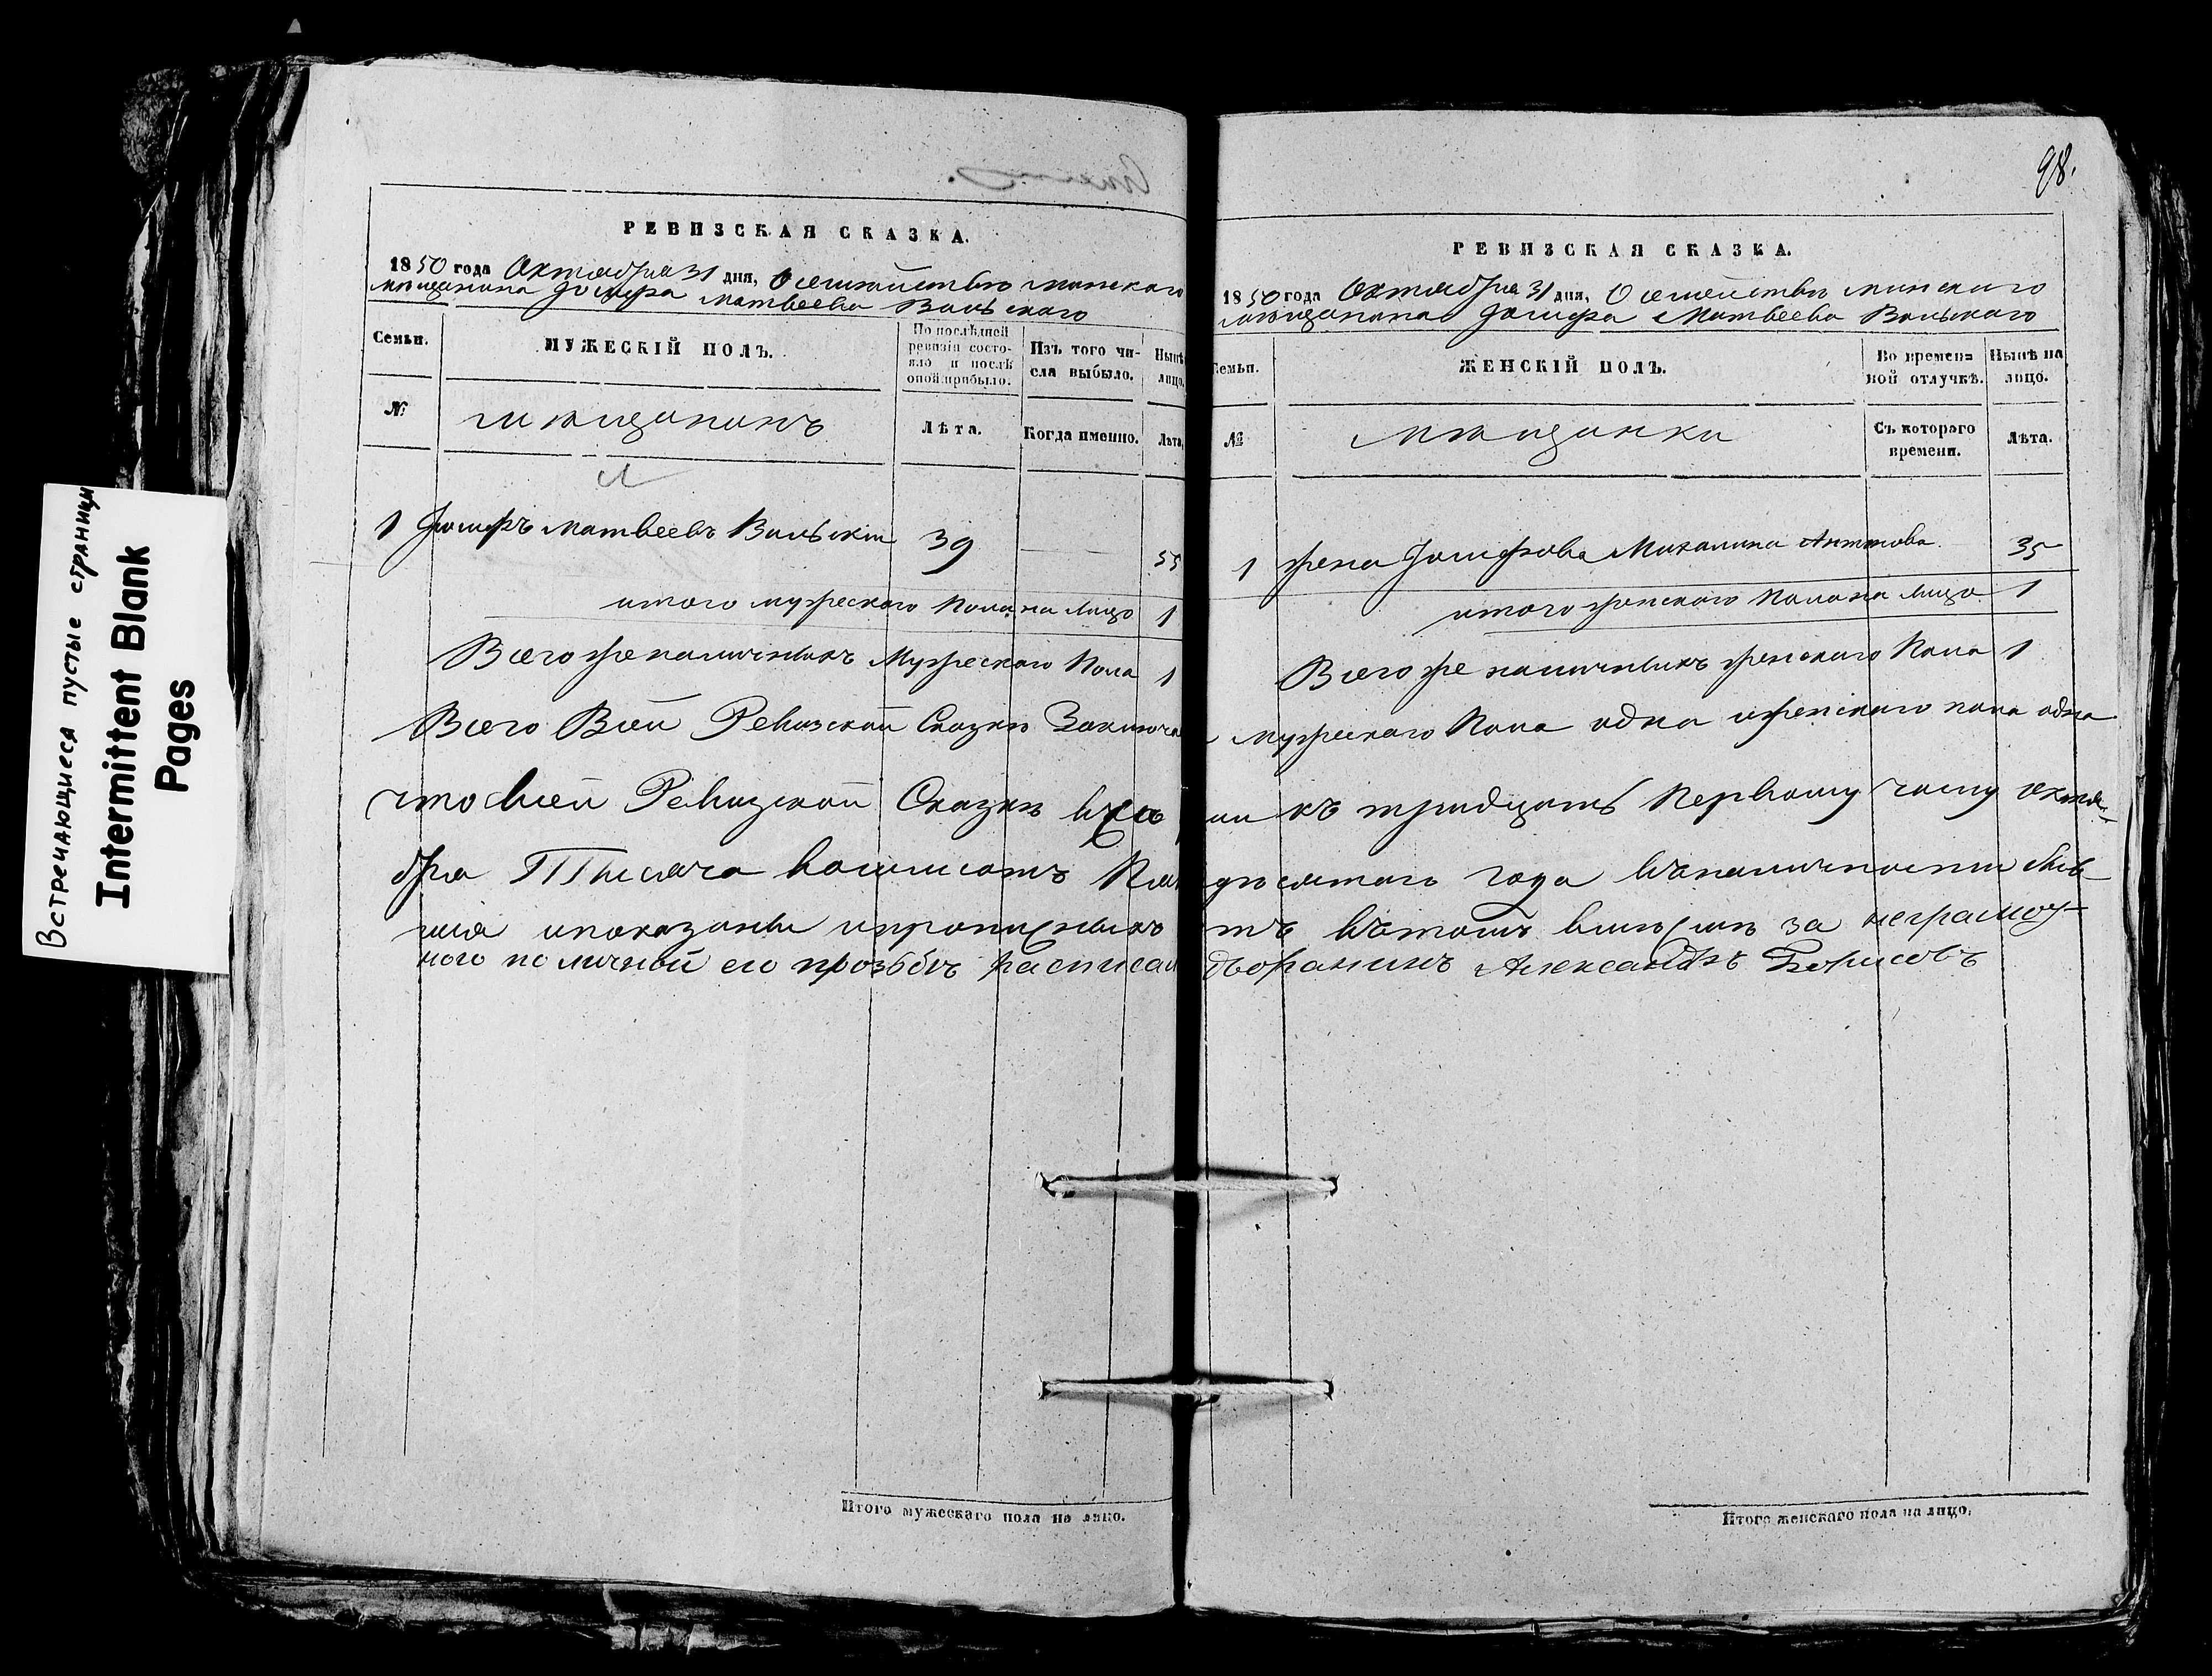 Встречающиеся пустые страницы
Intermittent Blank
Pages
РЕВИЗСКАЯ СКАЗКА.
1850 года Октября 31 дня, О семействе минского
мещанина Іосифа Матвеева Вольскаго
Семьи.
МУЖЕСКІЙ ПОЛЪ.
По послѣдней
ревизіи состо-
яло и послѣ
оной прибыло.
Изъ того чи-
сла выбыло.
Нынѣ
лицо.
№
мѣщанинъ
Лѣта.
Когда именно.
Лѣта
1 Іосифъ Матвеевъ Вольскій 39 55
итого мужескаго пола на лицо 1
Всего же наличныхъ Мужескаго Пола 1
Всего Всей Ревизской Сказке Заключа
что всей Ревизской Сказке
бря Тысяча восымсотъ
шія и показаны
ного по личной его прозьбѣ расписал
Итого мужескаго пола на лицо.
98.
РЕВИЗСКАЯ СКАЗКА.
1850 года Октября 31 дня, О семействе минскаго
мещанина Іосифа Матвеева Вольскаго
Семьи.
ЖЕНСКІЙ ПОЛЪ.
Во времен-
ной отлучкѣ.
Нынѣ на
лицо.
№
мѣщанки
Съ котораго
времени.
Лѣта.
1 жена Іосифова Михалина Антонова 35
итого женскаго пола на лицо 1
Всего же наличныхъ женскаго Пола 1
мужескаго Пола одна и женскаго пола одна
къ тридцать Первому числу Октя-
десятого года въ наличности быв-
въ томъ вместе за неграмот-
дворянинъ Александръ Борисовъ
Итого женскаго пола на лицо.